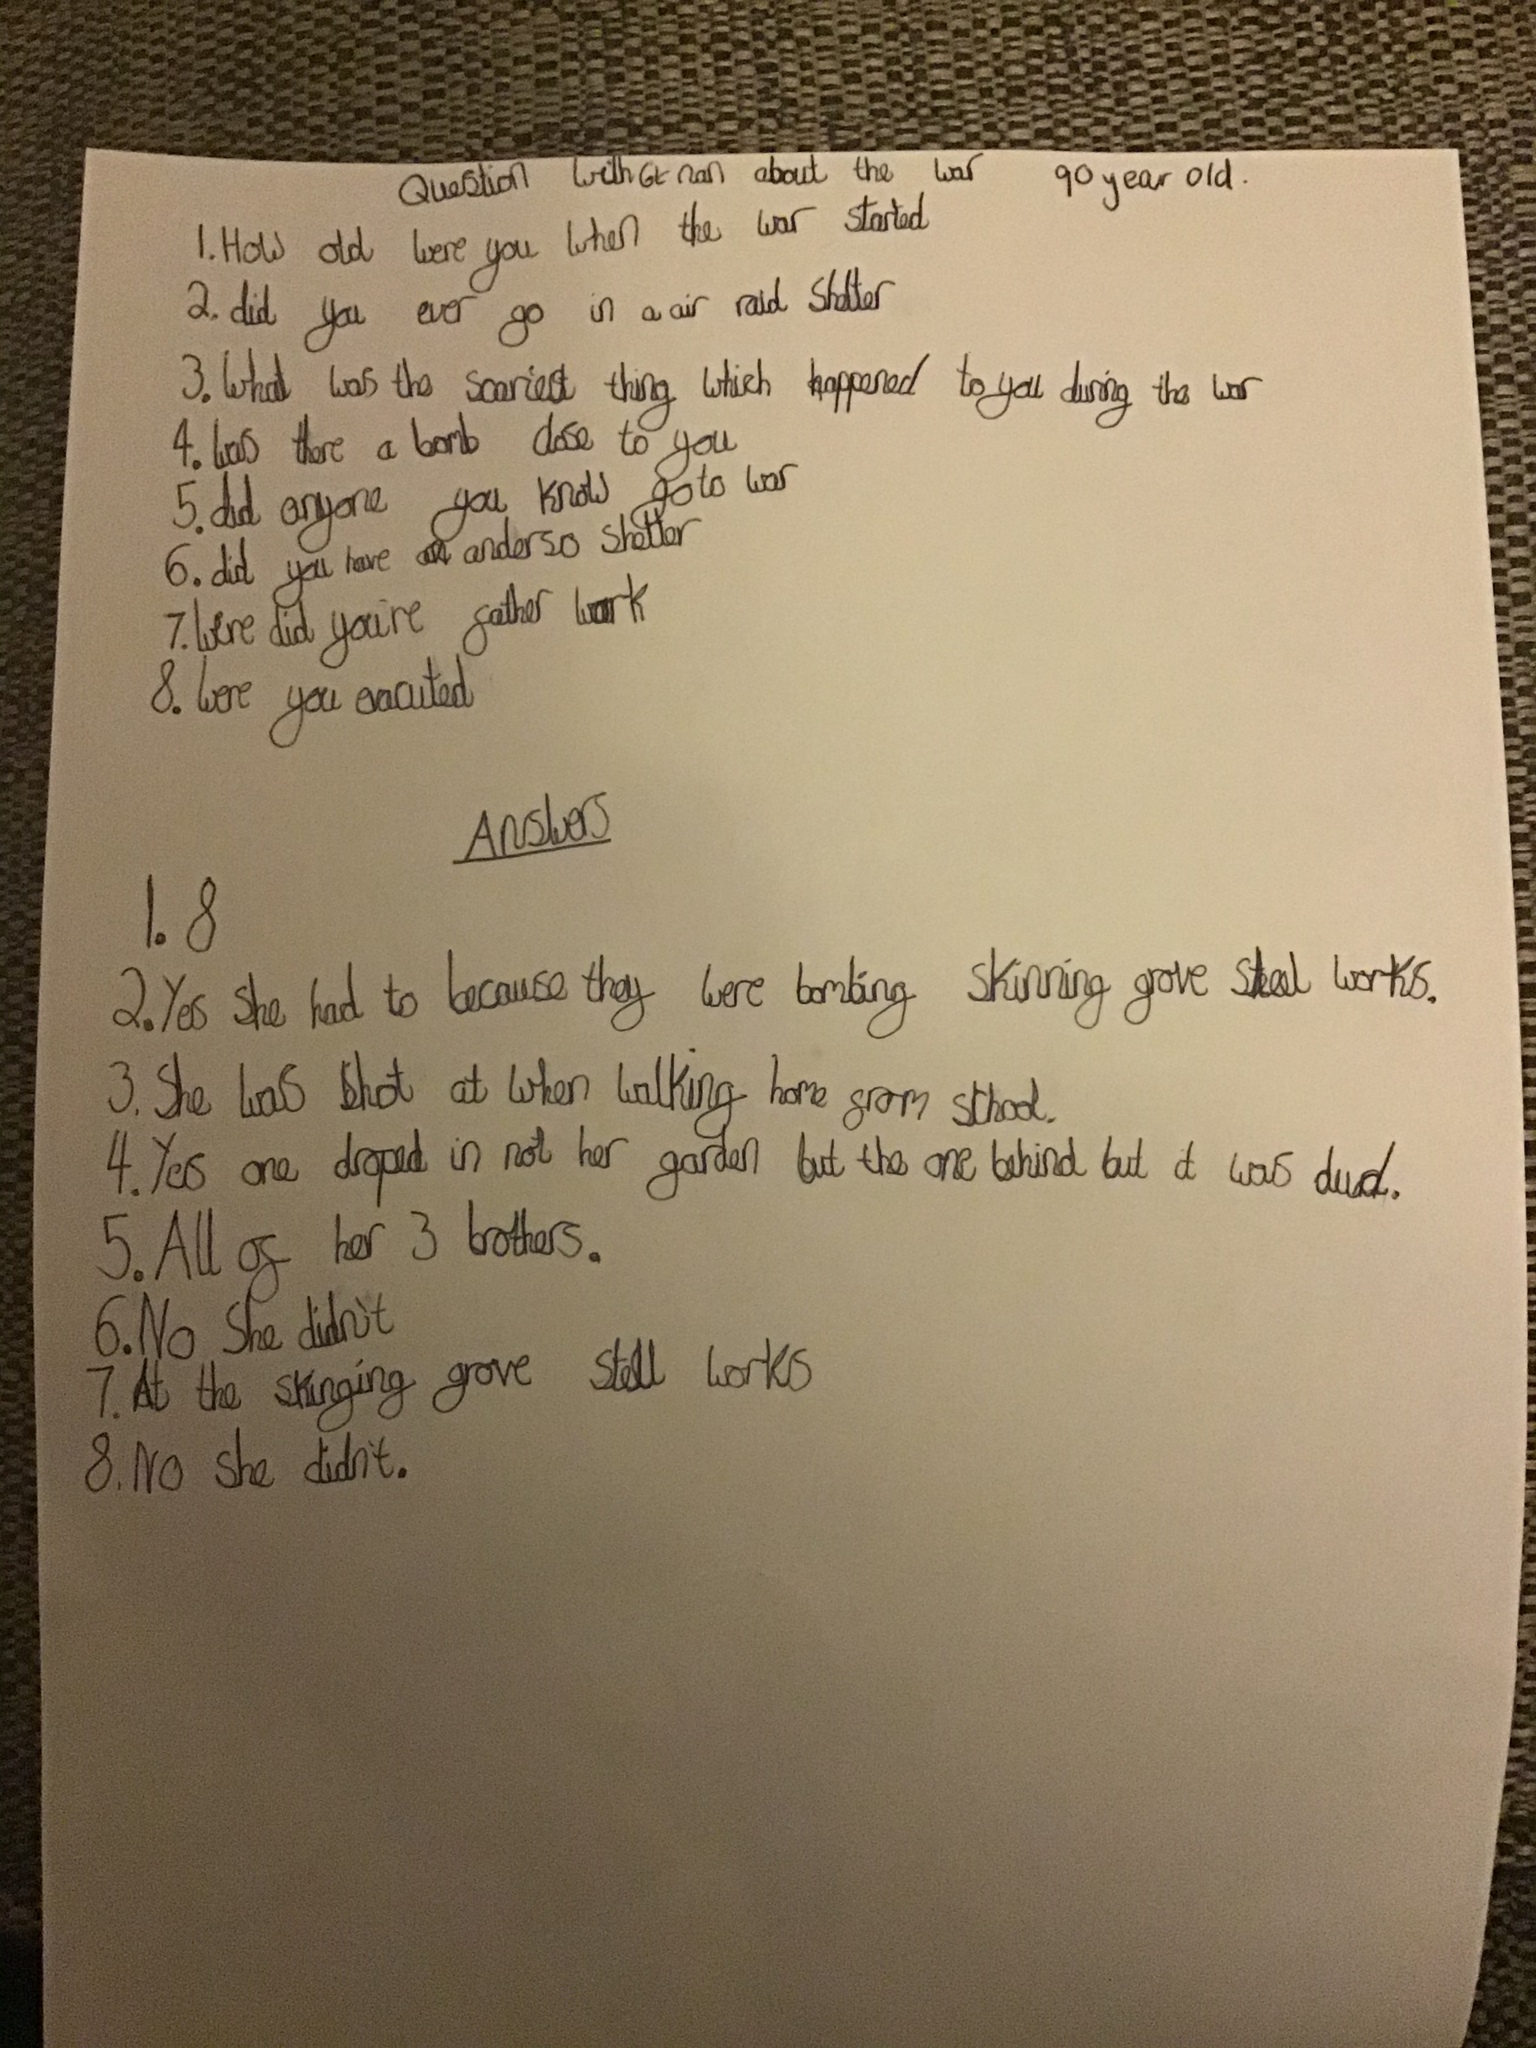 Question with Gt nan about the war 90 year old.
1. How old were you when the war started
2. did you ever go in a air raid shelter
3. What was the scariest thing which happened to you during the war
4. Was there a bomb close to you
5. did anyone you know go to war
6. did you have an anderso shelter
7. Were did you're father work
8. Were you evacuted
Answers
1. 8
2. Yes she had to because they were bombing skinning grove steel works.
3. She was shot at when walking home from school.
4. Yes one droped in not her garden but the one behind but it was dud.
5. All of her 3 brothers.
6. No she didn't
7. At the skinging grove stell works
8. No she didn't.